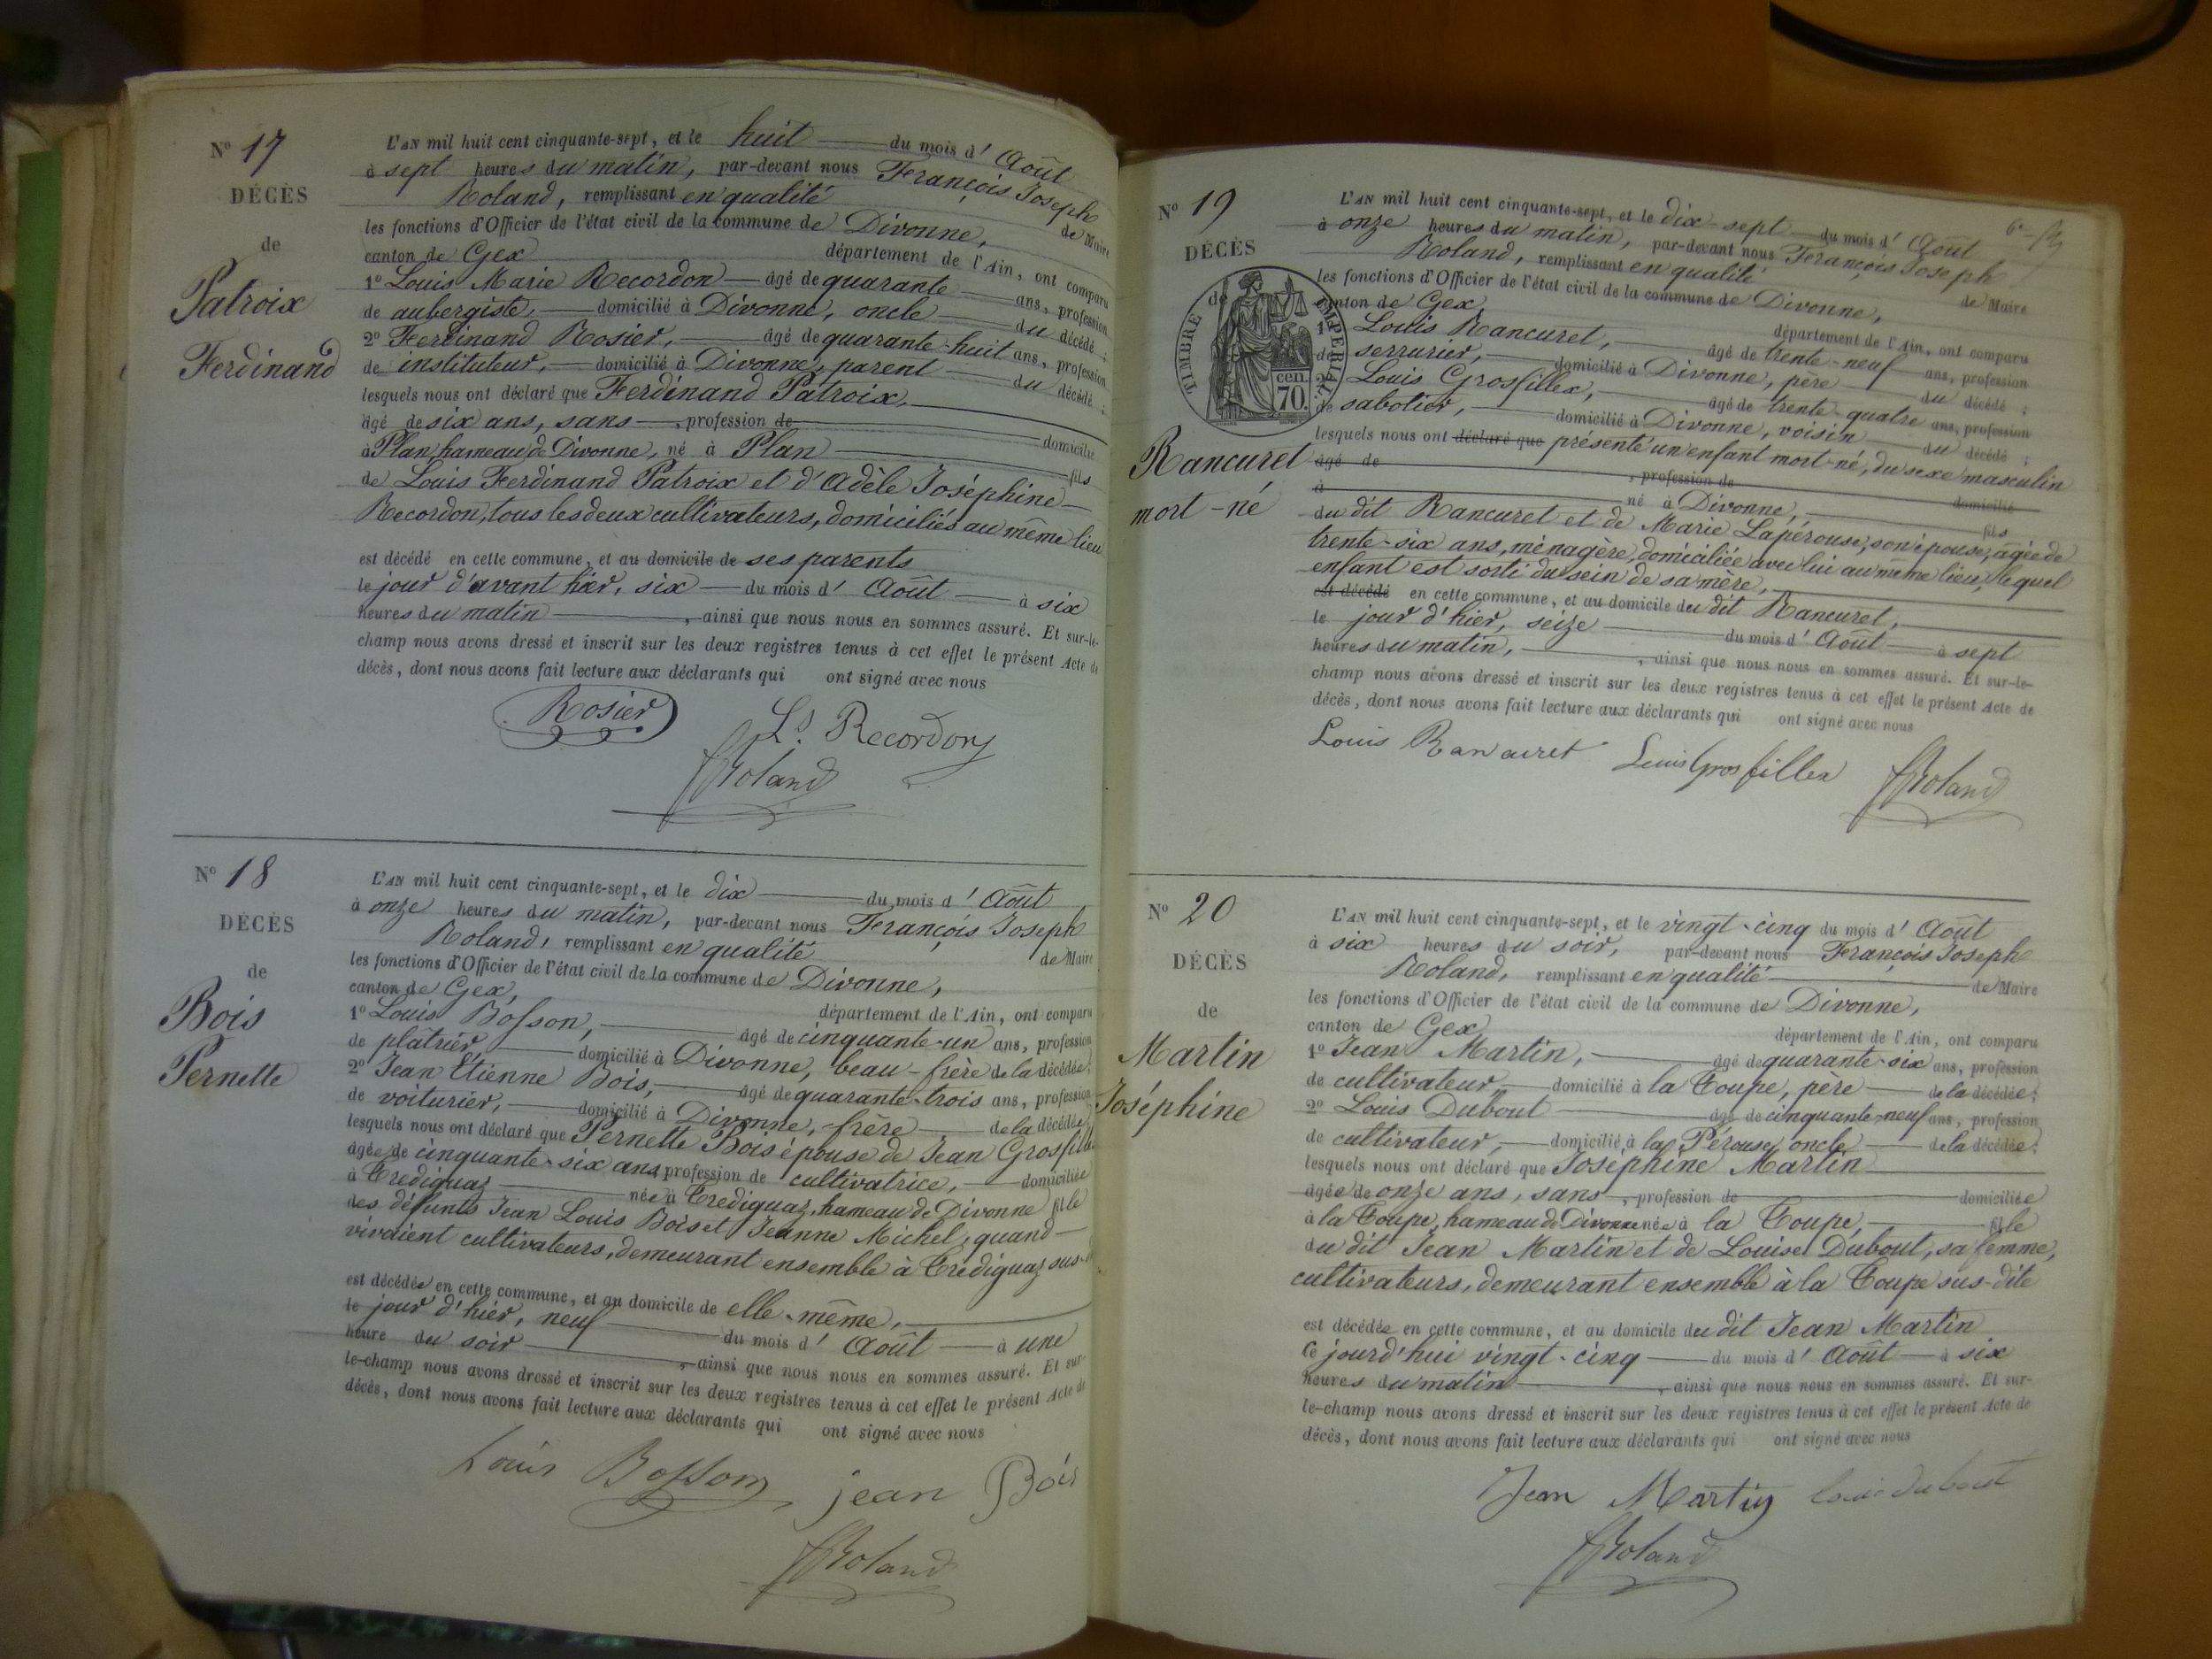 N° 17
DÉCÈS
de
Patroix
Ferdinand
L'AN mil huit cent cinquante-sept, et le huit du mois d'Août
à sept heures du matin, par-devant nous François Joseph
Roland, remplissant en qualité de Maire
les fonctions d'Officier de l'état civil de la commune de Divonne,
canton de Gex département de l'Ain, ont comparu
1° Louis Marie Recordon âgé de quarante ans, profession
de aubergiste, domicilié à Divonne, oncle du décédé;
2° Ferdinand Rosier, âgé de quarante-huit ans, profession
de instituteur, domicilié à Divonne, parent du décédé;
lesquels nous ont déclaré que Ferdinand Patroix,
âgé de six ans, sans, profession de domicilié
à Plan, hameau de Divonne, né à Plan fils
de Louis Ferdinand Patroix et d'Adèle Joséphine
Recordon, tous les deux cultivateurs, domiciliés au même lieu
est décédé en cette commune, et au domicile de ses parents
le jour d'avant hier, six du mois d'Août à six
heures du matin, ainsi que nous nous en sommes assuré. Et sur-le-
champ nous avons dressé et inscrit sur les deux registres tenus à cet effet le présent Acte de
décès, dont nous avons fait lecture aux déclarants qui ont signé avec nous
Rosier
Ls. Recordon
Roland
N° 18
DÉCÈS
de
Bois
Pernette
L'AN mil huit cent cinquante-sept, et le dix du mois d'Août
à onze heures du matin, par-devant nous François Joseph
Roland, remplissant en qualité de Maire
les fonctions d'Officier de l'état civil de la commune de Divonne,
canton de Gex, département de l'Ain, ont comparu
1° Louis Bosson, âgé de cinquante-un ans, profession
de plâtrier domicilié à Divonne, beau-frère de la décédée;
2° Jean Etienne Bois, âgé de quarante-trois ans, profession
de voiturier, domicilié à Divonne, frère de la décédée;
lesquels nous ont déclaré que Pernette Bois épouse de Jean
âgée de cinquante-six ans, profession de cultivatrice, domiciliée
à Crediguaz née à Crediguaz, hameau de Divonne fille
des défunts Jean Louis Bois et Jeanne Michel, quand
vivaient cultivateurs, demeurant ensemble à Crediguaz sus-
est décédée en cette commune, et au domicile de elle-même,
le jour d'hier, neuf du mois d'Août à une
heure du soir, ainsi que nous nous en sommes assuré. Et sur-
le-champ nous avons dressé et inscrit sur les deux registres tenus à cet effet le présent Acte de
décès, dont nous avons fait lecture aux déclarants qui ont signé avec nous
Louis Bosson
jean Bois
Roland
N° 19
DÉCÈS
de
TIMBRE IMPERIAL
cen.
70.
Rancuret
mort-né
L'AN mil huit cent cinquante-sept, et le dix-sept du mois d'Août
à onze heures du matin, par-devant nous François Joseph
Roland, remplissant en qualité de Maire
les fonctions d'Officier de l'état civil de la commune de Divonne,
canton de Gex, département de l'Ain, ont comparu
1° Louis Rancuret, âgé de trente-neuf ans, profession
de serrurier, domicilié à Divonne, père du décédé;
2° Louis Grosfillex, âgé de trente-quatre ans, profession
de sabotier, domicilié à Divonne, voisin du décédé;
lesquels nous ont déclaré que présenté un enfant mort-né, du sexe masculin
âgé de, profession de domicilié
à né à Divonne, fils
du dit Rancuret et de Marie Lapérouse, son épouse, agée de
trente-six ans, ménagère, domiciliée avec lui au même lieu, lequel
enfant est sorti du sein de sa mère,
est décédé en cette commune, et au domicile du dit Rancuret,
le jour d'hier, seize du mois d'Août à sept
heures du matin, ainsi que nous nous en sommes assuré. Et sur-le-
champ nous avons dressé et inscrit sur les deux registres tenus à cet effet le présent Acte de
décès, dont nous avons fait lecture aux déclarants qui ont signé avec nous
Louis Rancuret
Louis Grosfillex
Roland
N° 20
DÉCÈS
de
Martin
Joséphine
L'AN mil huit cent cinquante-sept, et le vingt-cinq du mois d'Août
à six heures du soir, par-devant nous François Joseph
Roland, remplissant en qualité de Maire
les fonctions d'Officier de l'état civil de la commune de Divonne,
canton de Gex département de l'Ain, ont comparu
1° Jean Martin, âgé de quarante-six ans, profession
de cultivateur, domicilié à la Coupe, père de la décédée;
2° Louis Dubout âgé de cinquante-neuf ans, profession
de cultivateur, domicilié à la Pérouse, oncle de la décédée;
lesquels nous ont déclaré que Joséphine Martin
âgée de onze ans, sans, profession de domiciliée
à la Coupe, hameau de Divonne née à la Coupe, fille
du dit Jean Martin et de Louise Dubout, sa femme,
cultivateurs, demeurant ensemble à la Coupe sus-dite
est décédée en cette commune, et au domicile du dit Jean Martin
Ce jourd'hui vingt-cinq du mois d'Août à six
heures du matin, ainsi que nous nous en sommes assuré. Et sur-
le-champ nous avons dressé et inscrit sur les deux registres tenus à cet effet le présent Acte de
décès, dont nous avons fait lecture aux déclarants qui ont signé avec nous
Jean Martin
Louis Dubout
Roland